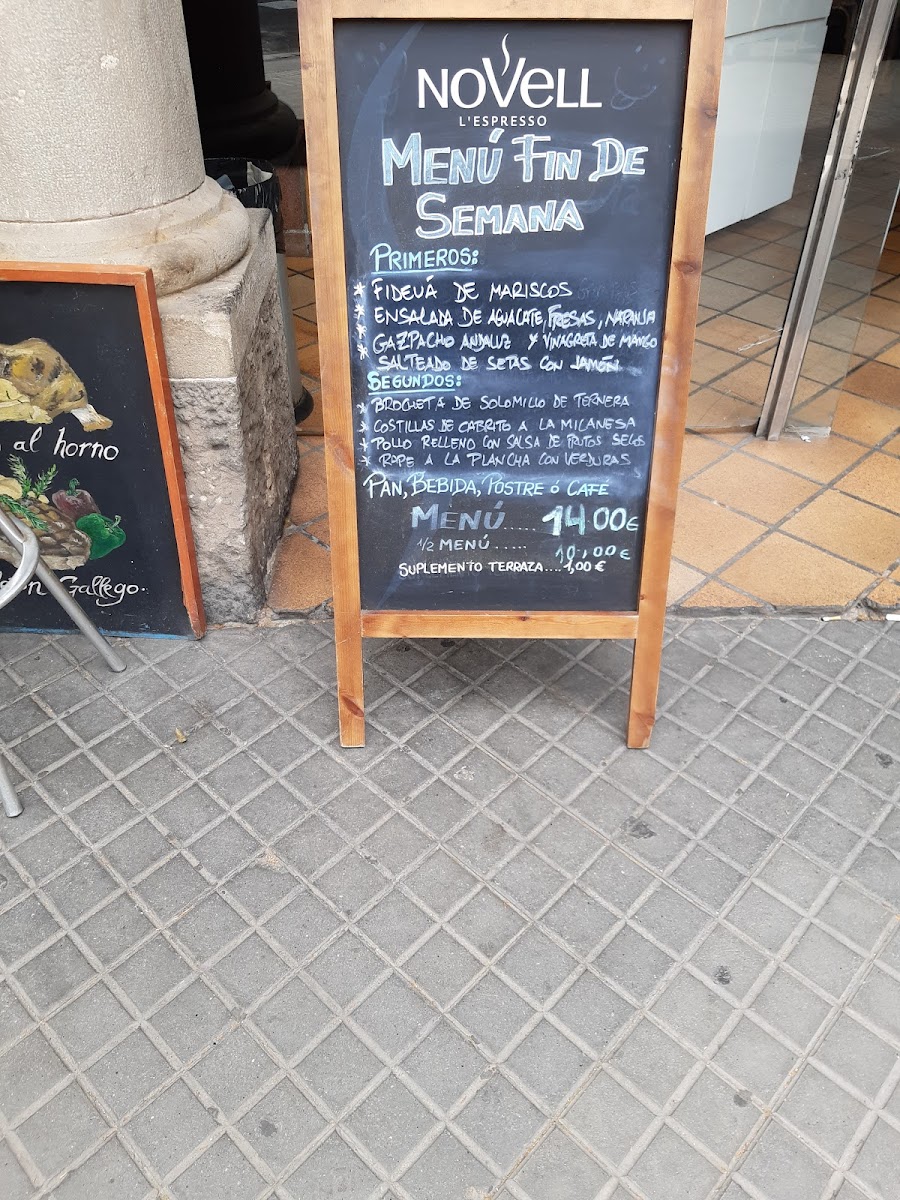 NOVELL
L'ESPRESSO
MENÚ FIN DE
SEMANA
PRIMEROS:
* FIDEUÁ DE MARISCOS
* ENSALADA DE AGUACATE, FRESAS, NARANJA
* GAZPACHO ANDALUZ Y VINAGRETA DE MANGO
* SALTEADO DE SETAS CON JAMÓN
SEGUNDOS:
* BROCHETA DE SOLOMILLO DE TERNERA
* COSTILLAS DE CABRITO A LA MILANESA
* POLLO RELLENO CON SALSA DE FRUTOS SECOS
* RAPE A LA PLANCHA CON VERDURAS
PAN, BEBIDA, POSTRE ó CAFE
MENÚ..... 14'00€
1/2 MENÚ..... 10,00€
SUPLEMENTO TERRAZA....1,00€
al horno
Gallego.